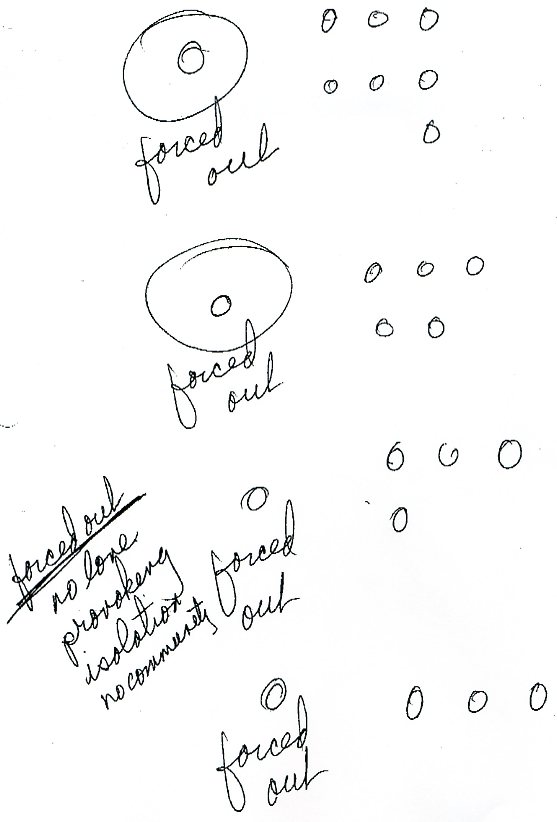 forced
out
forced
out
forced out
no love
provokeing
isolation
no community
forced
out
forced
out